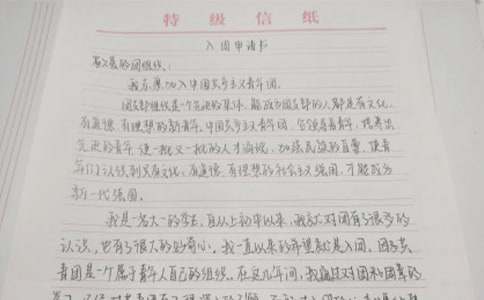 特级信纸
入团申请书
敬爱的团组织：
我志愿加入中国共产主义青年团。
团支部组织是一个先进的集体，能成为团支部的人都是有文化、
有道德、有理想的新青年。中国共产主义青年团，它领导着青年，培养出
先进的青年，使一批又一批的人才涌现，加强民族的重量，使青
年们认识到只有有文化、有道德、有理想的社会主义强国，才能成为
新一代强国。
我是一名大一的学生，自从上初中以来，我就对团有了很多的
认识，也有了很大的好奇心。我一直以来的希望就是入团。因为共
青团是一个属于青年人自己的组织。在这几年间，我通过对团和团章的